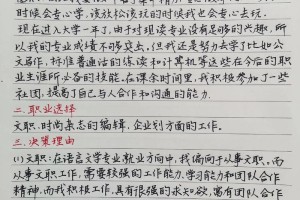 时候会专心学，该放松该玩的时候我也会专心去玩.
现在进入大学一年了，由于对现读专业没有足够的兴趣，所
以我的专业成绩不够突出，但我还是努力去学习比如公
文写作，标准普通话的练读和计算机等这些在今后的职
业生涯所必备的技能。在课余时间里，我积极参加了一些
社团，提高了自己与人合作和沟通的能力.
二.职业选择
文职、时尚杂志的编辑，企业划方面的工作。
三.决策理由
(1)文职：在语言文学专业就业方向中，我偏向于从事文职。而
从事文职工作，需要较强的工作能力、学习能力和团队合作
精神，而我积极工作，具有很强的求知欲，富有团队合作